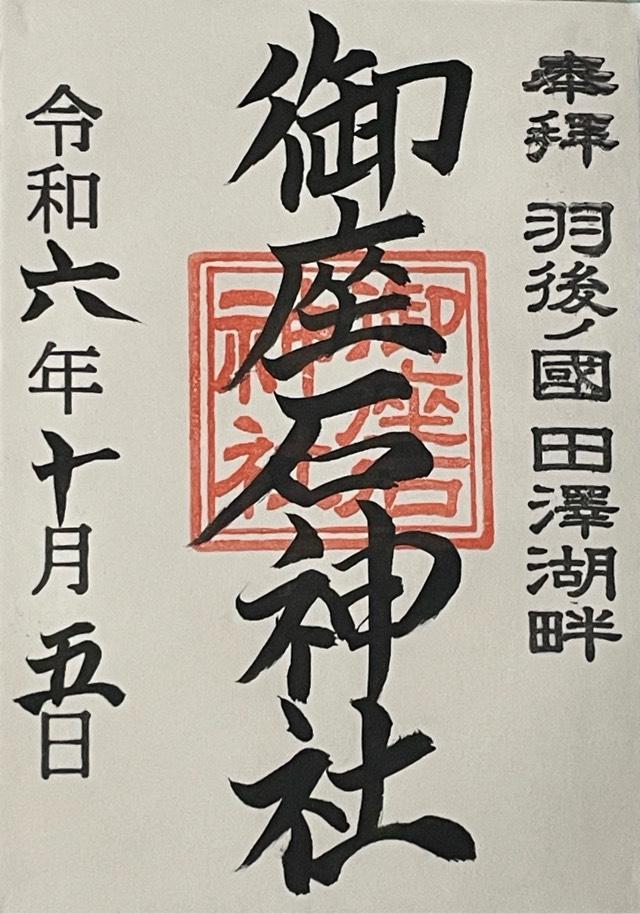 奉拝 羽後ノ國 田澤湖畔
御座石神社
御座石
神社
令和六年十月五日